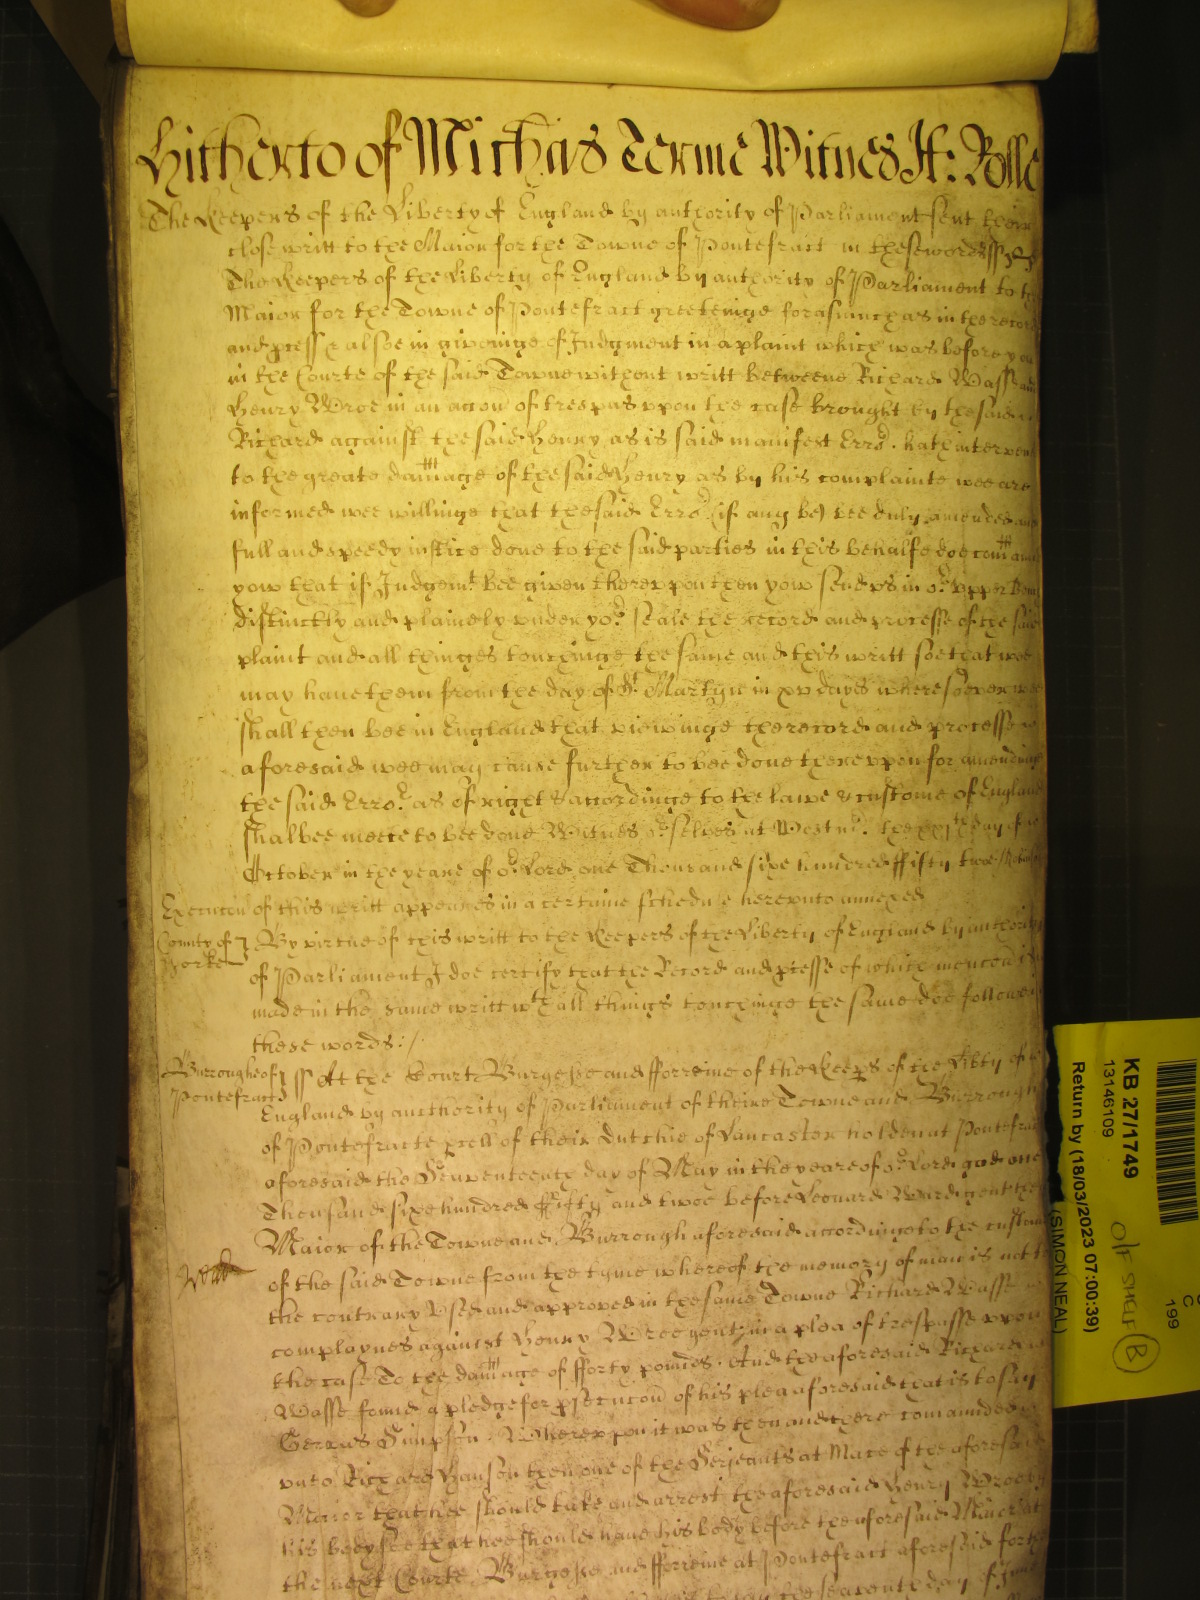 Hitherto of Michas Terme Witnes H: Rolle
The Keepers of the Liberty of England by authority of Parliament sent their
close writt to the Maior for the Towne of Pontefract in these words ss
The Keepers of the Liberty of England by authority of Parliament to the
Maior for the Towne of Pontefract greetinge forasmuch as in the record
and pcess & alsoe in giveinge of Judgment in a plaint which was before you
in the Courte of the said Towne without writt betweene Richard Wasse and
Henry Wroe in an accon of trespas vppon the case brought by the said
Richard against the said Henry as is said manifest Erro.r hath interven
to the greate damage of the said Henry as by his complainte wee are
informed wee willinge that the said Erro.r (if any be) bee duly amended and
full and speedy iustice done to the said parties in this behalfe doe comand
yow that if Judgem.t bee given therevppon then yow send vs in o.r vpper Benc
distinctly and plainely vnder yo.r seale the record and processe of the said
plaint and all thinges touchinge the same and this writt soe that wee
may have them from the day of S.t Martyn in xv dayes wheresoever wee
shall then bee in England that viewinge the record and processe
aforesaid wee may cause further to bee done therevppon for amendinge
the said Erro.r as of right & accordinge to the lawe & custome of England
shalbee meete to bee done Witnes o.r selves at Westm.r the xxith day of
October in the yeare of o.r Lord one Thousand sixe hundred fifty twoe
Execucon of this writt appeares in a certaine schedule herevnto annexed
County of Yorke By virtue of this writt to the Keepers of the Liberty of England by authority
of Parliament I doe certify that the Record and pcesse of which mencon is
made in the same writt wth all things touchinge the same doe followe in
these words:/
Burroughe of Pontefract ss At the Court Burgesse and fforreine of the Keeps of the Libty of
England by authority of Parliament of theire Towne and Burrough
of Pontefracte pcell of their Dutchie of Lancaster holden at Pontefract
aforesaid the Seaventeenth day of May in the yeare of o.r Lord god one
Thousand sixe hundred ffifty and twoe before Leonard Ward gent then
Maior of the Towne and Burrough aforesaid accordinge to the custome
of the said Towne from the tyme whereof the memory of man is not to
the contrary vsed and approved in the same Towne Richard Wasse
complaynes against Henry Wroe gent in a plea of trespasse vppon
the case To the damage of fforty pounds. And the aforesaid Richard
Wasse found a pledge for psecucon of his plea aforesaid that is to say
Gervas Simpson. Wherevpon it was then and there comaunded
vnto Richard Hanson then one of the Serjeants at Mace of the aforesaid
Maior that hee should take and arrest the aforesaid Henry Wroe by
his body soe that hee should have his body before the aforesaid Maior at
the next Courte Burgesse and fforreine at Pontefract aforesaid
KB 27/1749
13146109
Return by (18/03/2023 07:00:39)
(SIMON NEAL)
O/F SHELF B
C
199